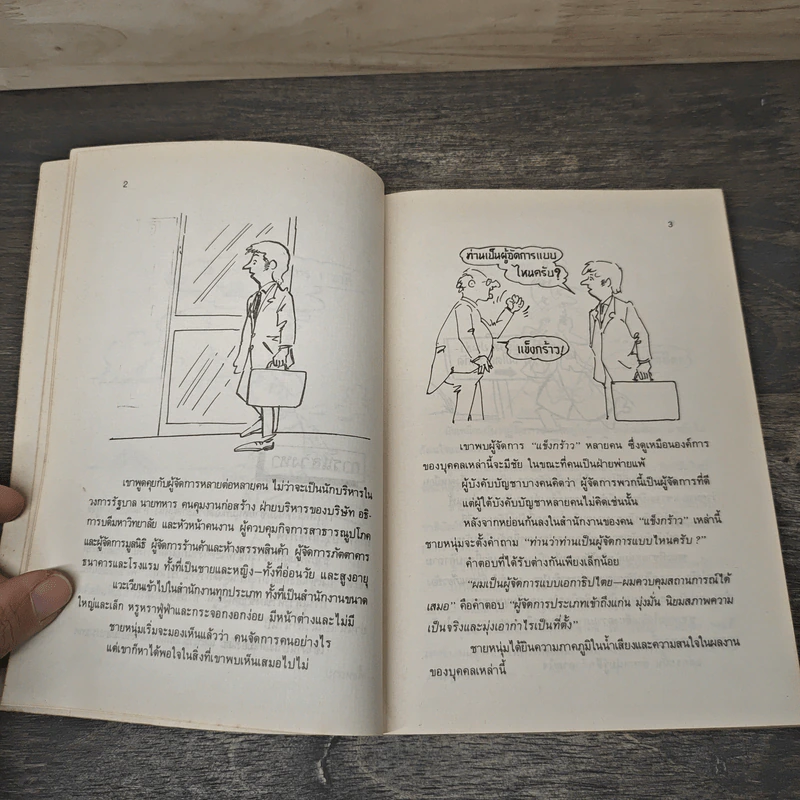 2
เขาพูดคุยกับผู้จัดการหลายต่อหลายคน ไม่ว่าจะเป็นนักบริหารใน
วงการรัฐบาล นายทหาร คนคุมงานก่อสร้าง ฝ่ายบริหารของบริษัท อธิ-
การบดีมหาวิทยาลัย และหัวหน้าคนงาน ผู้ควบคุมกิจการสาธารณูปโภค
และผู้จัดการมูลนิธิ ผู้จัดการร้านค้าและห้างสรรพสินค้า ผู้จัดการภัตตาคาร
ธนาคารและโรงแรม ทั้งที่เป็นชายและหญิง—ทั้งที่อ่อนวัย และสูงอายุ
แวะเวียนเข้าไปในสำนักงานทุกประเภท ทั้งที่เป็นสำนักงานขนาด
ใหญ่และเล็ก หรูหราฟู่ฟ่าและกระจอกงอกง่อย มีหน้าต่างและไม่มี
ชายหนุ่มเริ่มจะมองเห็นแล้วว่า คนจัดการคนอย่างไร
แต่เขาก็หาได้พอใจในสิ่งที่เขาพบเห็นเสมอไปไม่
3
ท่านเป็นผู้จัดการแบบ
ไหนครับ?
แข็งกร้าว!
เขาพบผู้จัดการ "แข็งกร้าว" หลายคน ซึ่งดูเหมือนองค์การ
ของบุคคลเหล่านี้จะมีชัย ในขณะที่คนเป็นฝ่ายพ่ายแพ้
ผู้บังคับบัญชาบางคนคิดว่า ผู้จัดการพวกนี้เป็นผู้จัดการที่ดี
แต่ผู้ใต้บังคับบัญชาหลายคนไม่คิดเช่นนั้น
หลังจากหย่อนก้นลงในสำนักงานของคน "แข็งกร้าว" เหล่านี้
ชายหนุ่มจะตั้งคำถาม "ท่านว่าท่านเป็นผู้จัดการแบบไหนครับ ?"
คำตอบที่ได้รับต่างกันเพียงเล็กน้อย
"ผมเป็นผู้จัดการแบบเอกาธิปไตย—ผมควบคุมสถานการณ์ได้
เสมอ" คือคำตอบ "ผู้จัดการประเภทเข้าถึงแก่น มุ่งมั่น นิยมสภาพความ
เป็นจริงและมุ่งเอากำไรเป็นที่ตั้ง"
ชายหนุ่มได้ยินความภาคภูมิในน้ำเสียงและความสนใจในผลงาน
ของบุคคลเหล่านี้